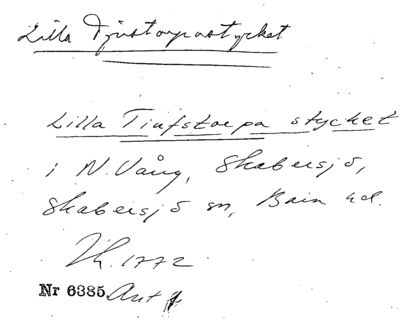 Lilla Tjustorpastycket
Lilla Tiufstorpa stycket
i N. Vång, Skabersjö,
Skabersjö sn, Bara hd.
1772
Nr 6385 Ant